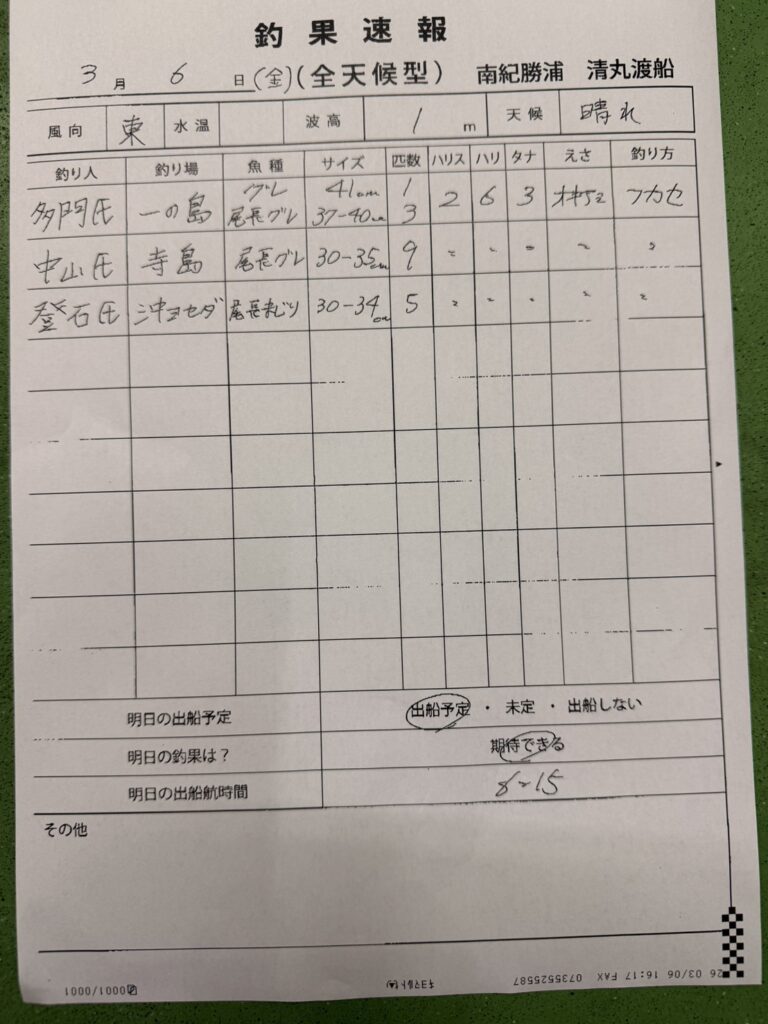 釣果速報
3月 6日(金)(全天候型) 南紀勝浦 清丸渡船
風向 東 水温 波高 1 m 天候 晴れ
釣り人 釣り場 魚種 サイズ 匹数 ハリス ハリ タナ えさ 釣り方
グレ 41cm 1
多門氏 一の島 尾長グレ 37-40cm 3 2 6 3 オキアミ フカセ
中山氏 寺島 尾長グレ 30-35cm 9 〃 〃 〃 〃 〃
登石氏 沖ヨセダ 尾長まじり 30-34cm 5 〃 〃 〃 〃 〃
明日の出船予定 出船予定 ・ 未定 ・ 出船しない
明日の釣果は? 期待できる
明日の出船航時間 6-15
その他
26 03/06 16:17 FAX 0735525587 キヨマルトセン 0001/0001